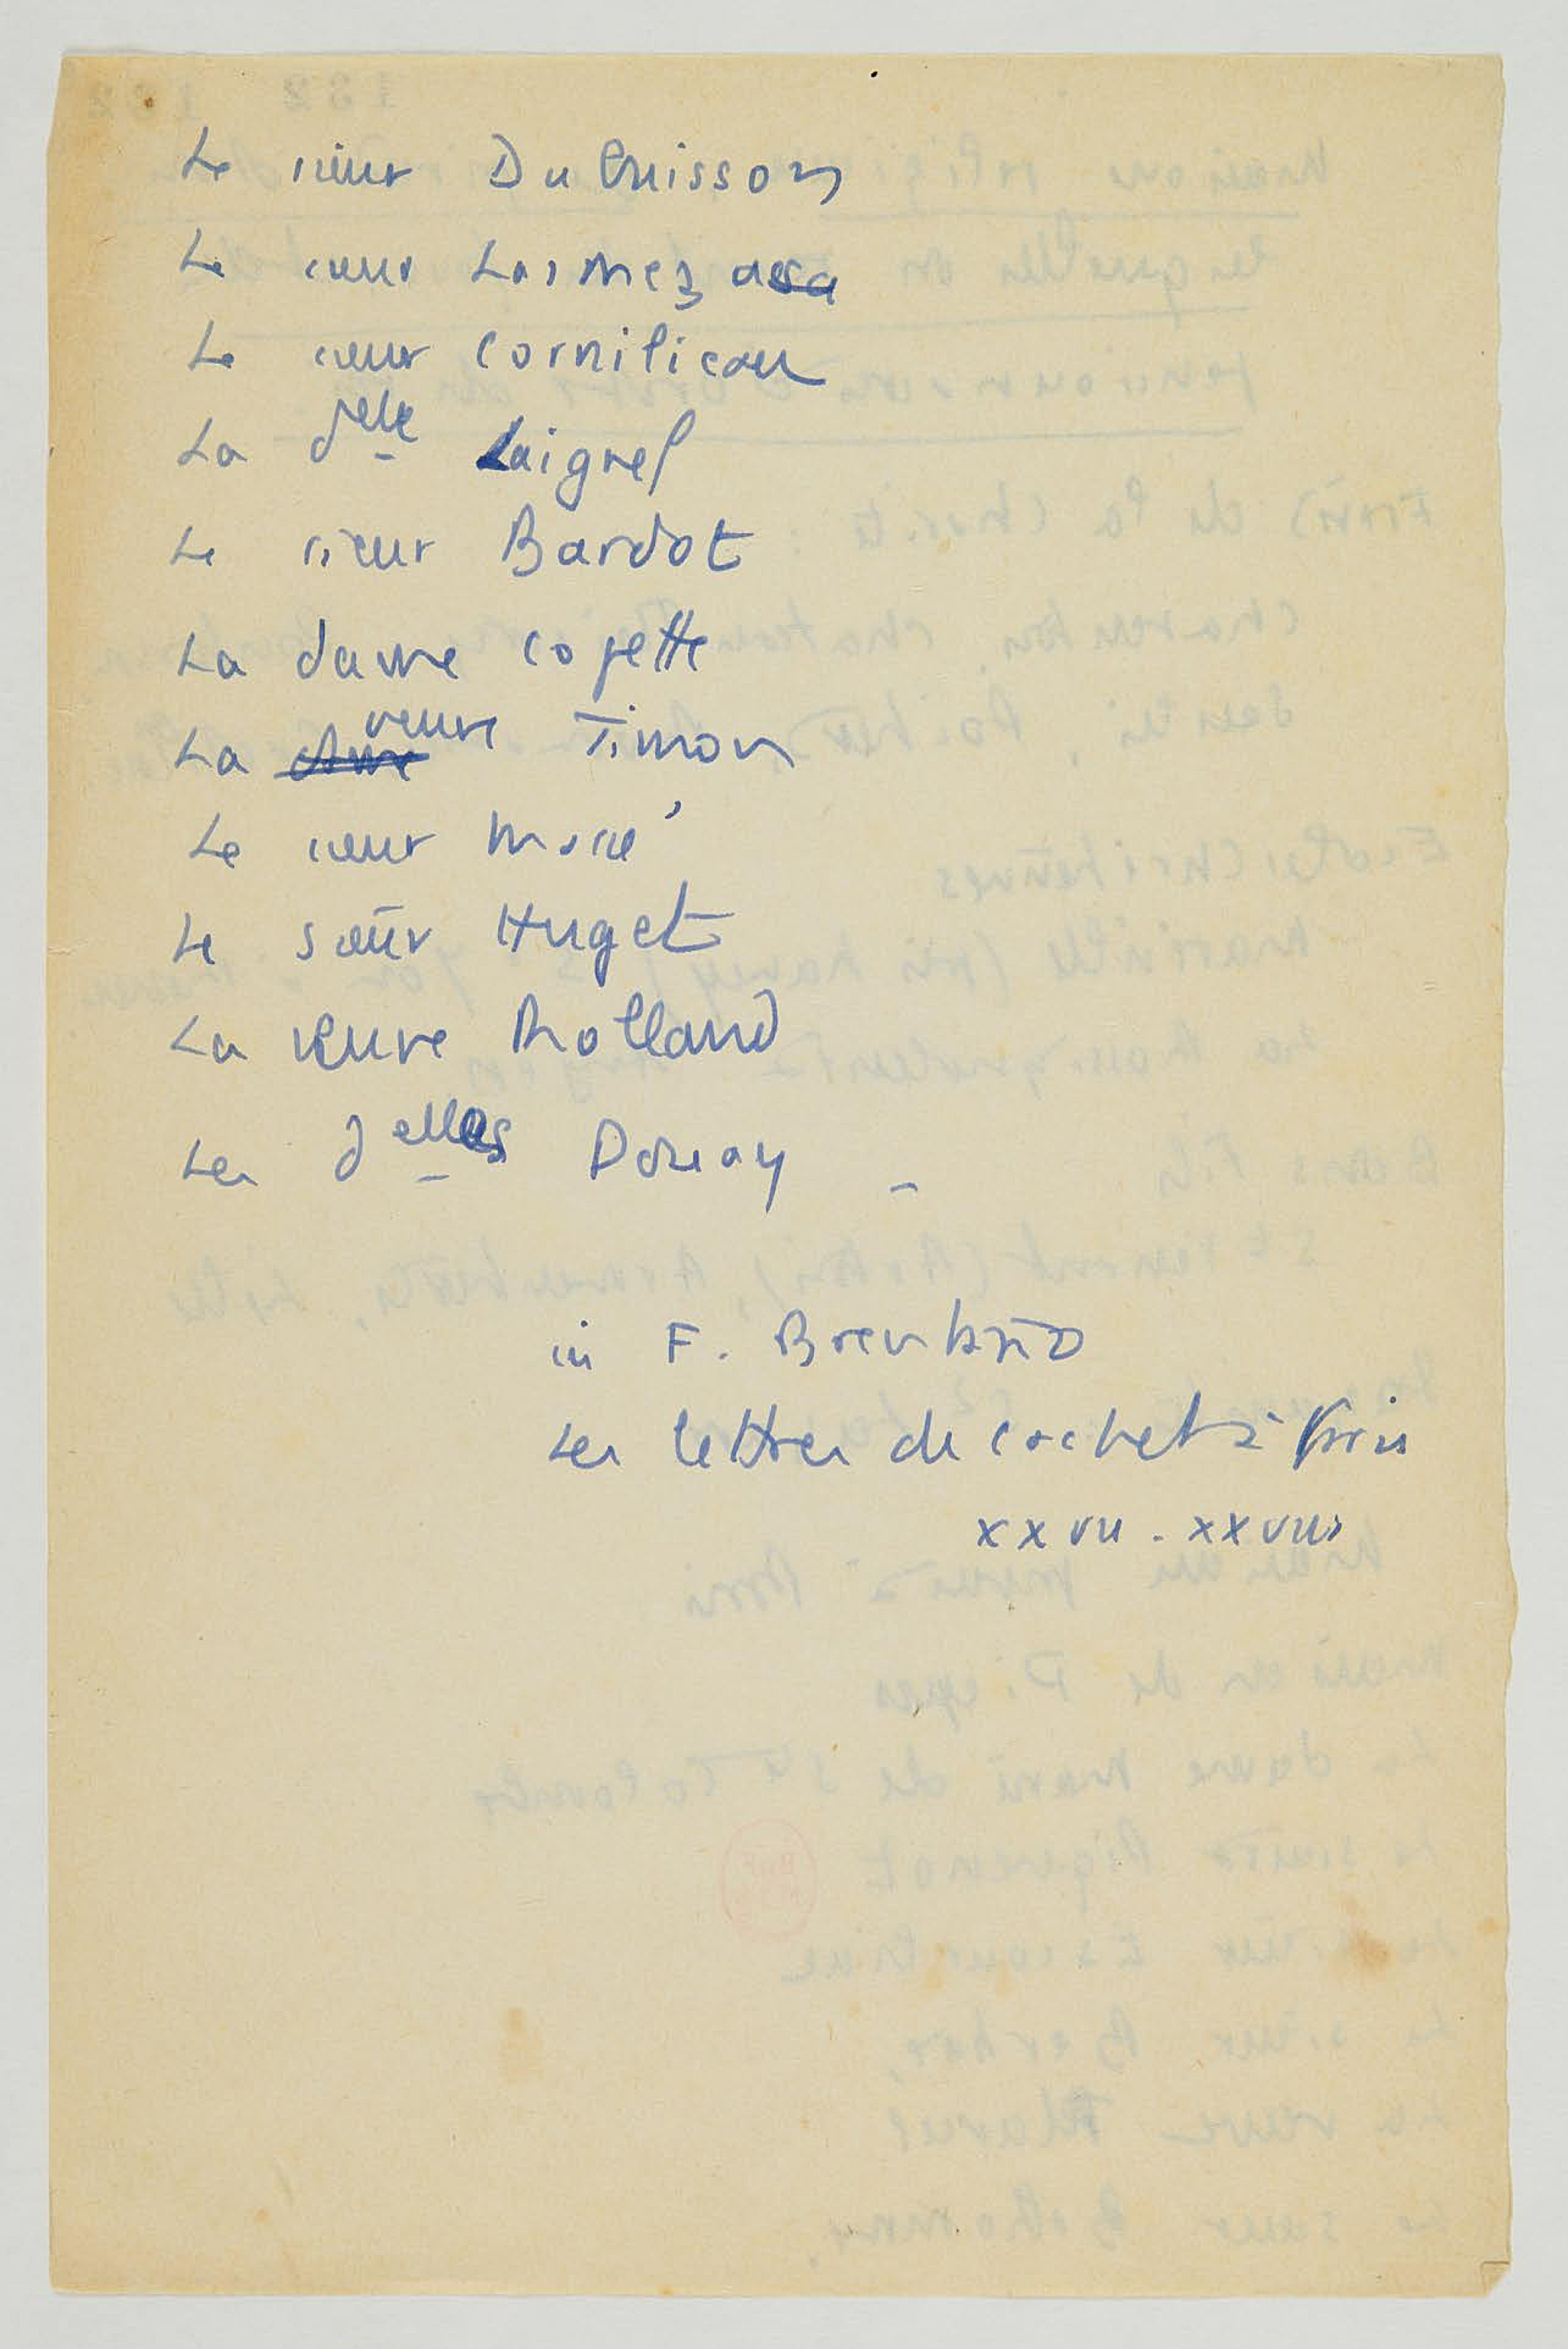 Le sieur Du Guisson
Le sieur Lasmezasa
Le sieur Cornilieau
La delle Laignel
Le sieur Bardot
La dame Copette
La veuve Timon
Le sieur Macé
Le sieur Huget
La veuve Rolland
Les delles Douay
in F. Brentano
Les lettres de cachet à Paris
XXVII - XXVIII